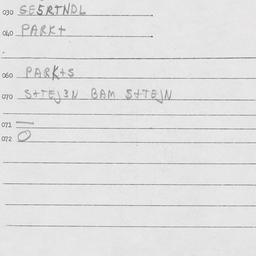 030 SE5RTNDL
040 PARK+
060 PARK+S
070 S+TEJ3N BAM S+TEJN
071 —
072 O